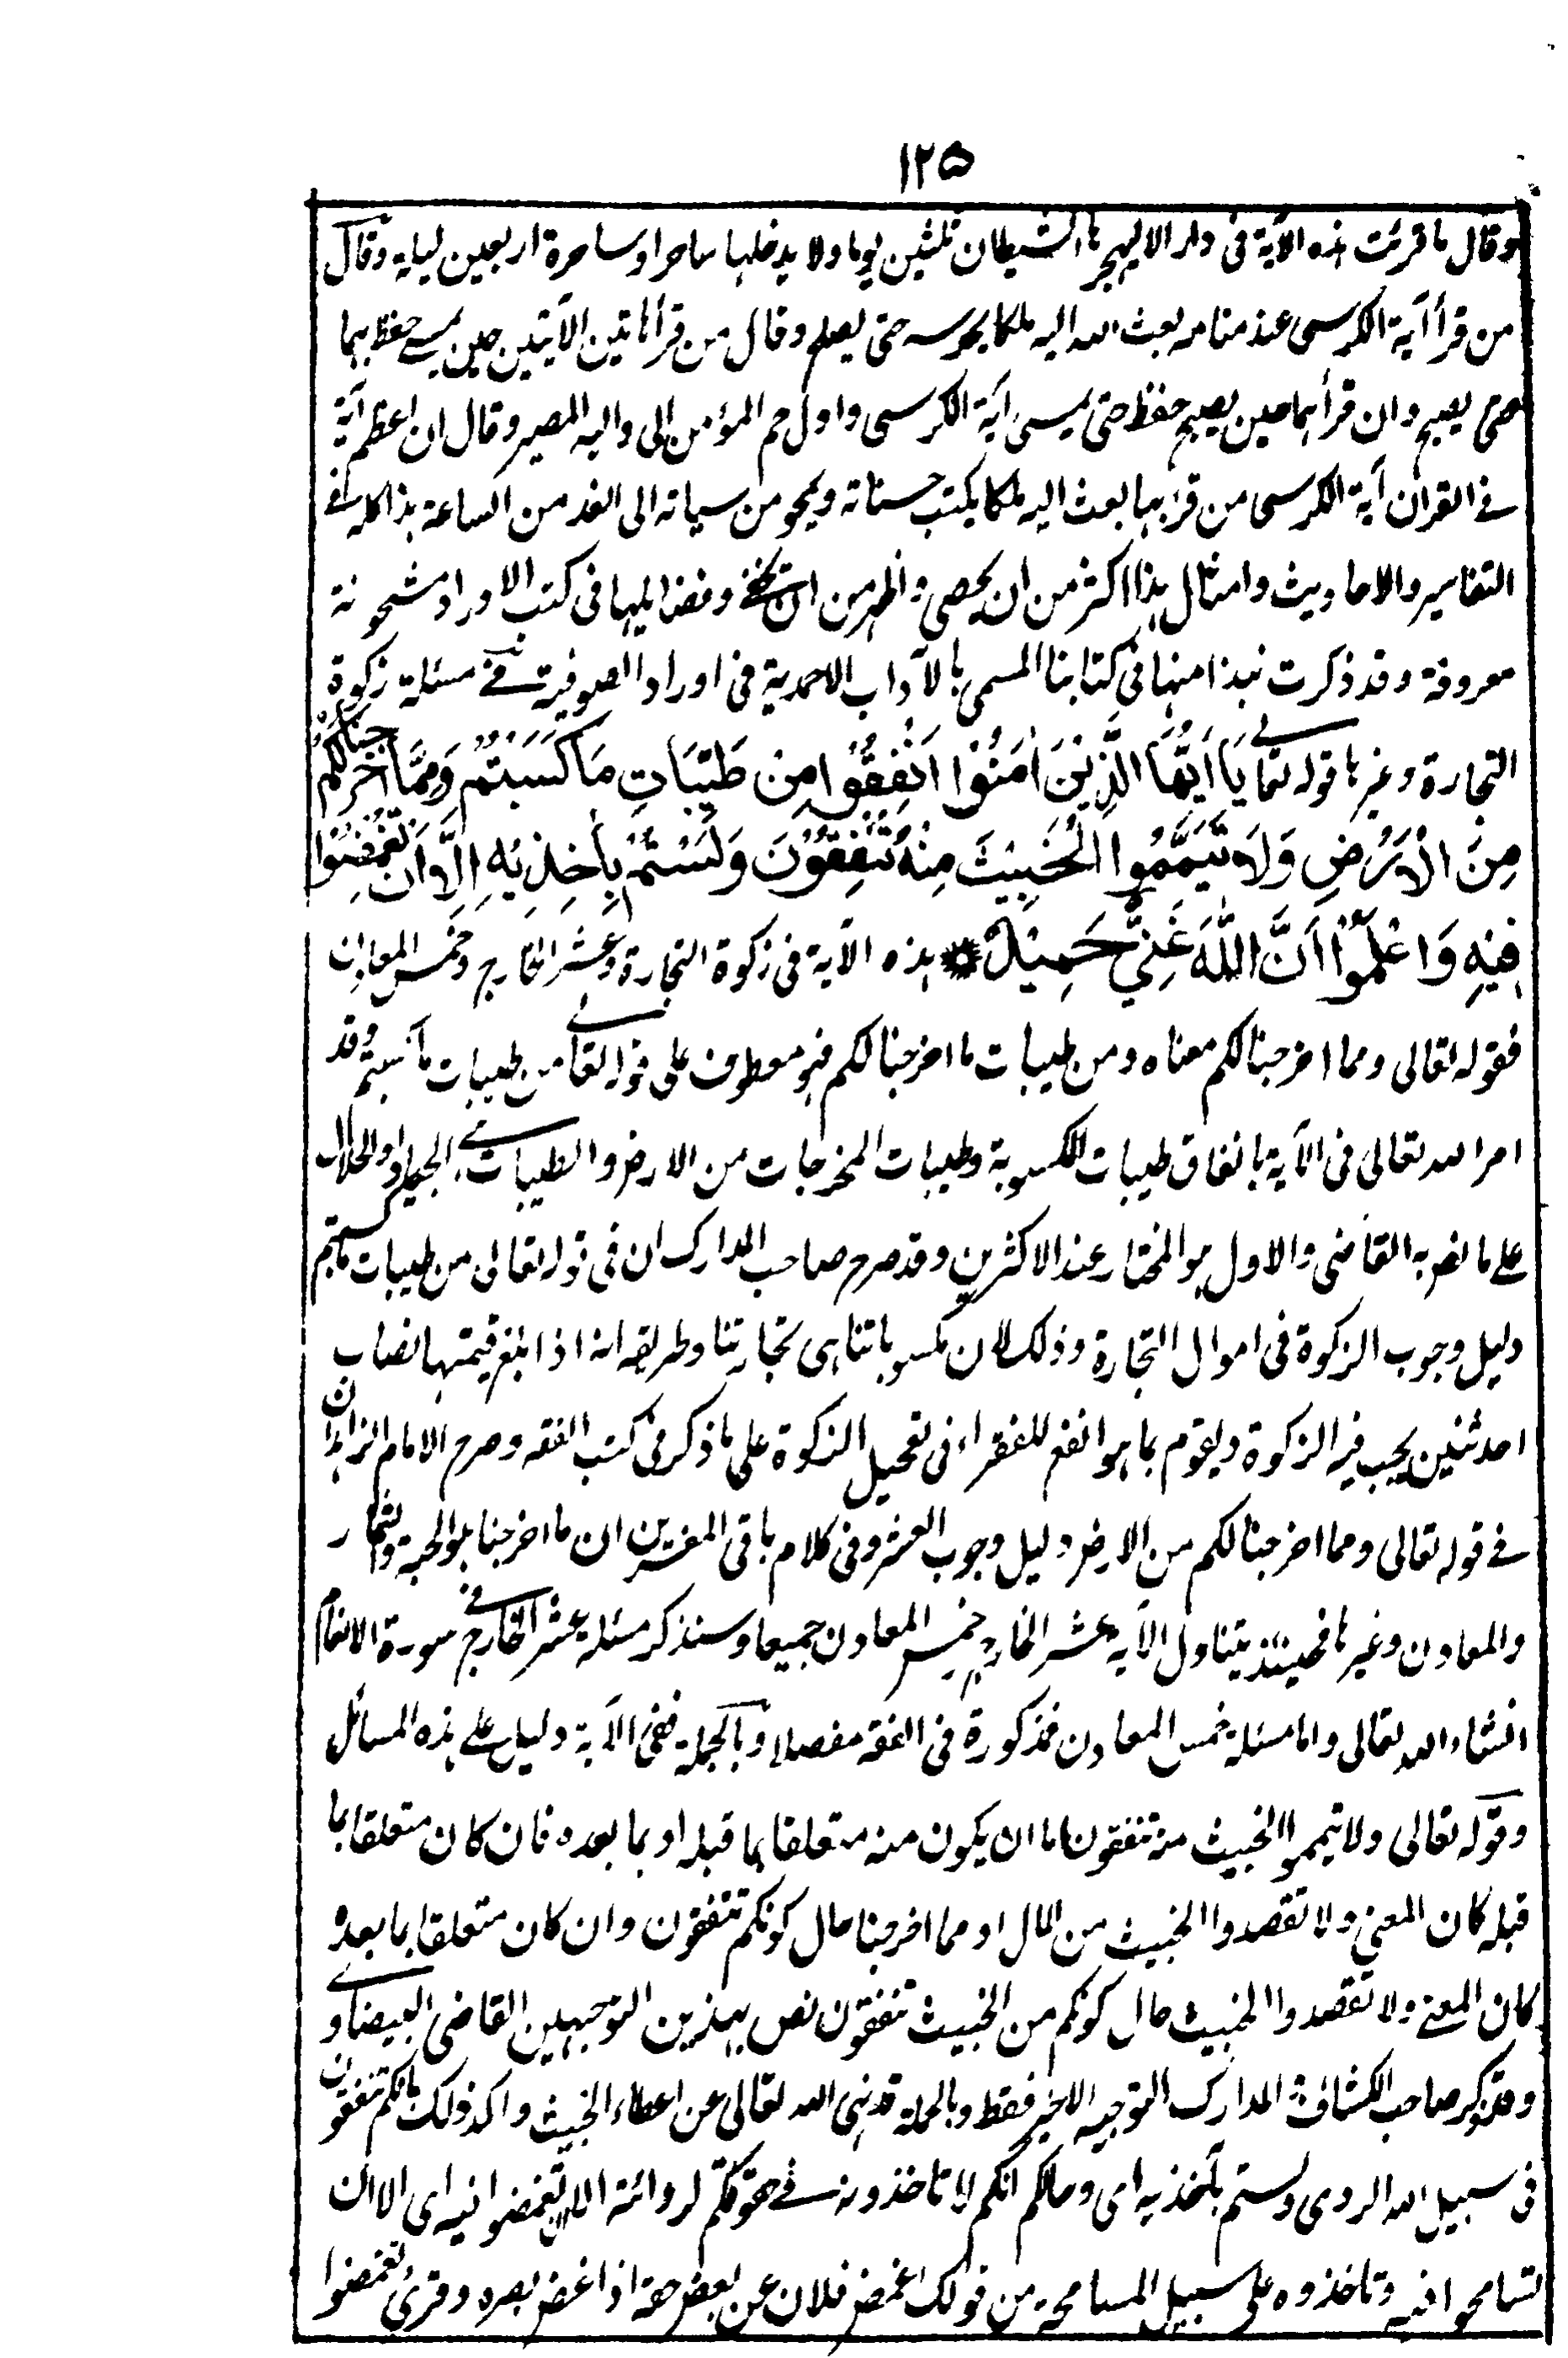 ١٢٥
وقال ما قرئت هذه الآية فى دار الا يهجرها الشيطان ثلثين يوما ولا يدخلها ساحرا وساحرة اربعين ليلة وقال
من قرأ آية الكرسى عند منامه بعث الله اليه ملكا يحرسه حتى يصبح وقال من قرأ هاتين الآيتين حين يمسے حفظ بهما
حتى يصبح وان قرأهما حين يصبح حفظ حتى يمسى آية الكرسى واول حم المؤمن الى واليه المصير وقال ان اعظم آية
فے القران آية الكرسى من قرأها بعث اليه ملكا يكتب حسناته ويمحو من سياته الى الغد من الساعة هذا كله فے
التفاسير والاحاديث وامثال هذا اكثر من ان يحصى واظهر من ان تخفے وفضايلها فى كتب الاوراد مشحونة
معروفة وقد ذكرت نبذا منها فى كتابنا المسمى بالآداب الاحمدية فى اوراد الصوفية فے مسئلة زكوة
التجارة وغيرها قوله تعالے يَا اَيُّهَا الَّذِيْنَ اٰمَنُوْا اَنْفِقُوْا مِنْ طَيِّبَاتِ مَا كَسَبْتُمْ وَمِمَّا اَخْرَجْنَا لَكُمْ
مِنَ الْاَرْضِ وَلَا تَيَمَّمُوا الْخَبِيْثَ مِنْهُ تُنْفِقُوْنَ وَلَسْتُمْ بِاٰخِذِيْهِ اِلَّا اَنْ تُغْمِضُوْا
فِيْهِ وَاعْلَمُوْا اَنَّ اللّٰهَ غَنِيٌّ حَمِيْدٌ هذه الآية فى زكوة التجارة وعشر الخارج وخمس المعادن
فقوله تعالى ومما اخرجنا لكم معناه ومن طيبات ما اخرجنا لكم فهو معطوف على قوله تعالے من طيبات ما كسبتم وقد
امر الله تعالى فى الآية بانفاق طيبات المكسوبة وطيبات المخرجات من الارض والطيبات هے الجياد او الحلال
علے ما نص به القاضى والاول هو المختار عند الاكثرين وقد صرح صاحب المدارك ان فى قوله تعالى من طيبات ما كسبتم
دليل وجوب الزكوة فى اموال التجارة وذلك لان مكسوباتنا هى تجارتنا وطريقه انه اذا بلغ قيمتها نصاب
احد ثنين يجب فيه الزكوة ويقوم بما هو انفع للفقراء فى تحصيل الزكوة على ما ذكر فى كتب الفقه وصرح الامام الزاهد ان
فے قوله تعالى ومما اخرجنا لكم من الارض دليل وجوب العشر وفى كلام باقى المفسرين ان ما اخرجنا هو الحبة والثمار
والمعادن وغيرها فحينئذ يتناول الآية عشر الخارج وخمس المعادن جميعا وسنذكر مسئلة عشر الخارج فے سورة الانعام
انشاء الله تعالى واما مسئلة خمس المعادن فمذكورة فى الفقه مفصلا وبالجملة ففى الآية دليل علے هذه المسائل
وقوله تعالى ولا تيمموا الخبيث منه تنفقون اما ان يكون منه متعلقا بما قبله او بما بعده فان كان متعلقا بما
قبله كان المعنى ولا تقصدوا الخبيث من المال او مما اخرجنا حال كونكم تنفقون وان كان متعلقا بما بعده
كان المعنے ولا تقصدوا الخبيث حال كونكم من الخبيث تنفقون نص بهذين التوجيهين القاضى البيضاوے
وقد ذكر صاحب الكشاف والمدارك التوجيه الاخير فقط وبالجملة قد نهى الله تعالى عن اعطاء الخبيث واكد ذلك بانكم تنفقون
فى سبيل الله الردى ولستم بآخذيه اى وحالكم انكم لا تاخذونه فے حقوقكم لرداءته الا ان تغمضوا فيه اى الا ان
تسامحوا فيه وتاخذوه على سبيل المسامحة من قولك اغمض فلان عن بعض حقه اذا غض بصره وقرئ تغمضوا